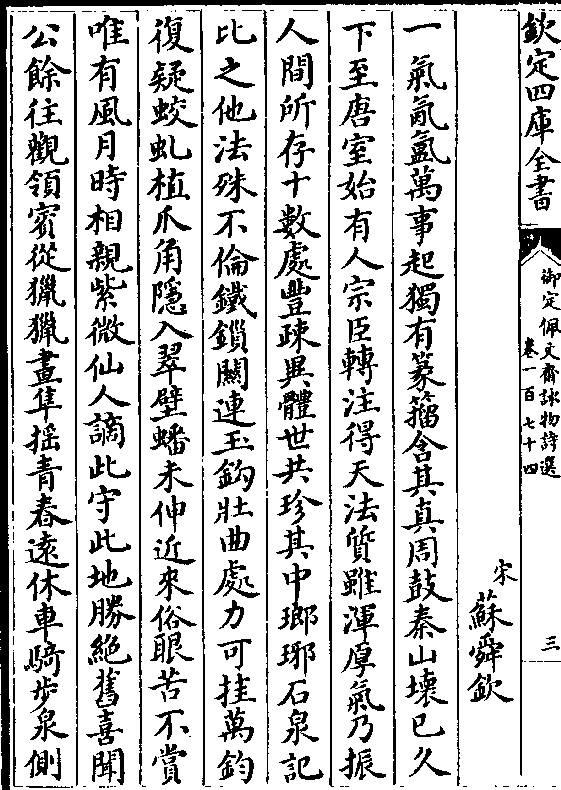 欽定四庫全書
御定佩文齋詠物詩選
卷一百七十四
三
宋
蘇舜欽
一氣氤氳萬事起獨有篆籀含其真周鼓秦山壞已久
下至唐室始有人宗臣轉注得天法質雖渾厚氣乃振
人間所存十數處豐疎異體世共珍其中瑯琊石泉記
比之他法殊不倫鐵鎖關連玉鈎壯曲處力可挂萬鈞
復疑蛟虬植爪角隱入翠壁蟠未伸近來俗眼苦不賞
唯有風月時相親紫微仙人謫此守此地勝絶舊喜聞
公餘往觀領賓從獵獵畫隼揺青春遠休車騎步泉側